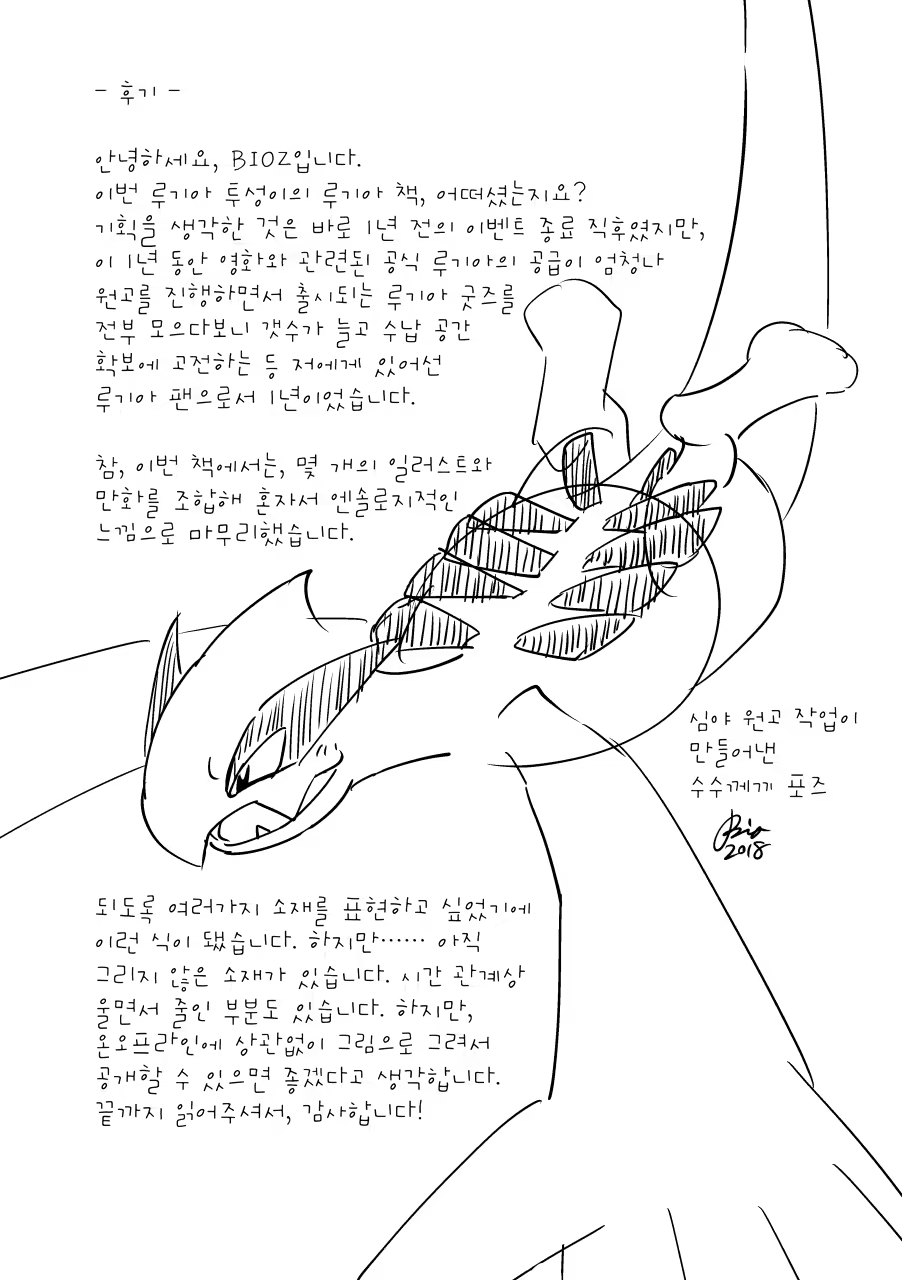 - 후기 -
안녕하세요, BIOZ입니다.
이번 루기아 투성이의 루기아 책, 어떠셨는지요?
기획을 생각한 것은 바로 1년 전의 이벤트 종료 직후였지만,
이 1년 동안 영화와 관련된 공식 루기아의 공급이 엄청나
원고를 진행하면서 출시되는 루기아 굿즈를
전부 모으다보니 갯수가 늘고 수납 공간
확보에 고전하는 등 저에게 있어선
루기아 팬으로서 1년이었습니다.
참, 이번 책에서는, 몇 개의 일러스트와
만화를 조합해 혼자서 엔솔로지적인
느낌으로 마무리했습니다.
심야 원고 작업이
만들어낸
수수께끼 포즈
Bio
2018
되도록 여러가지 소재를 표현하고 싶었기에
이런 식이 됐습니다. 하지만…… 아직
그리지 않은 소재가 있습니다. 시간 관계상
울면서 줄인 부분도 있습니다. 하지만,
온오프라인에 상관없이 그림으로 그려서
공개할 수 있으면 좋겠다고 생각합니다.
끝까지 읽어주셔서, 감사합니다!